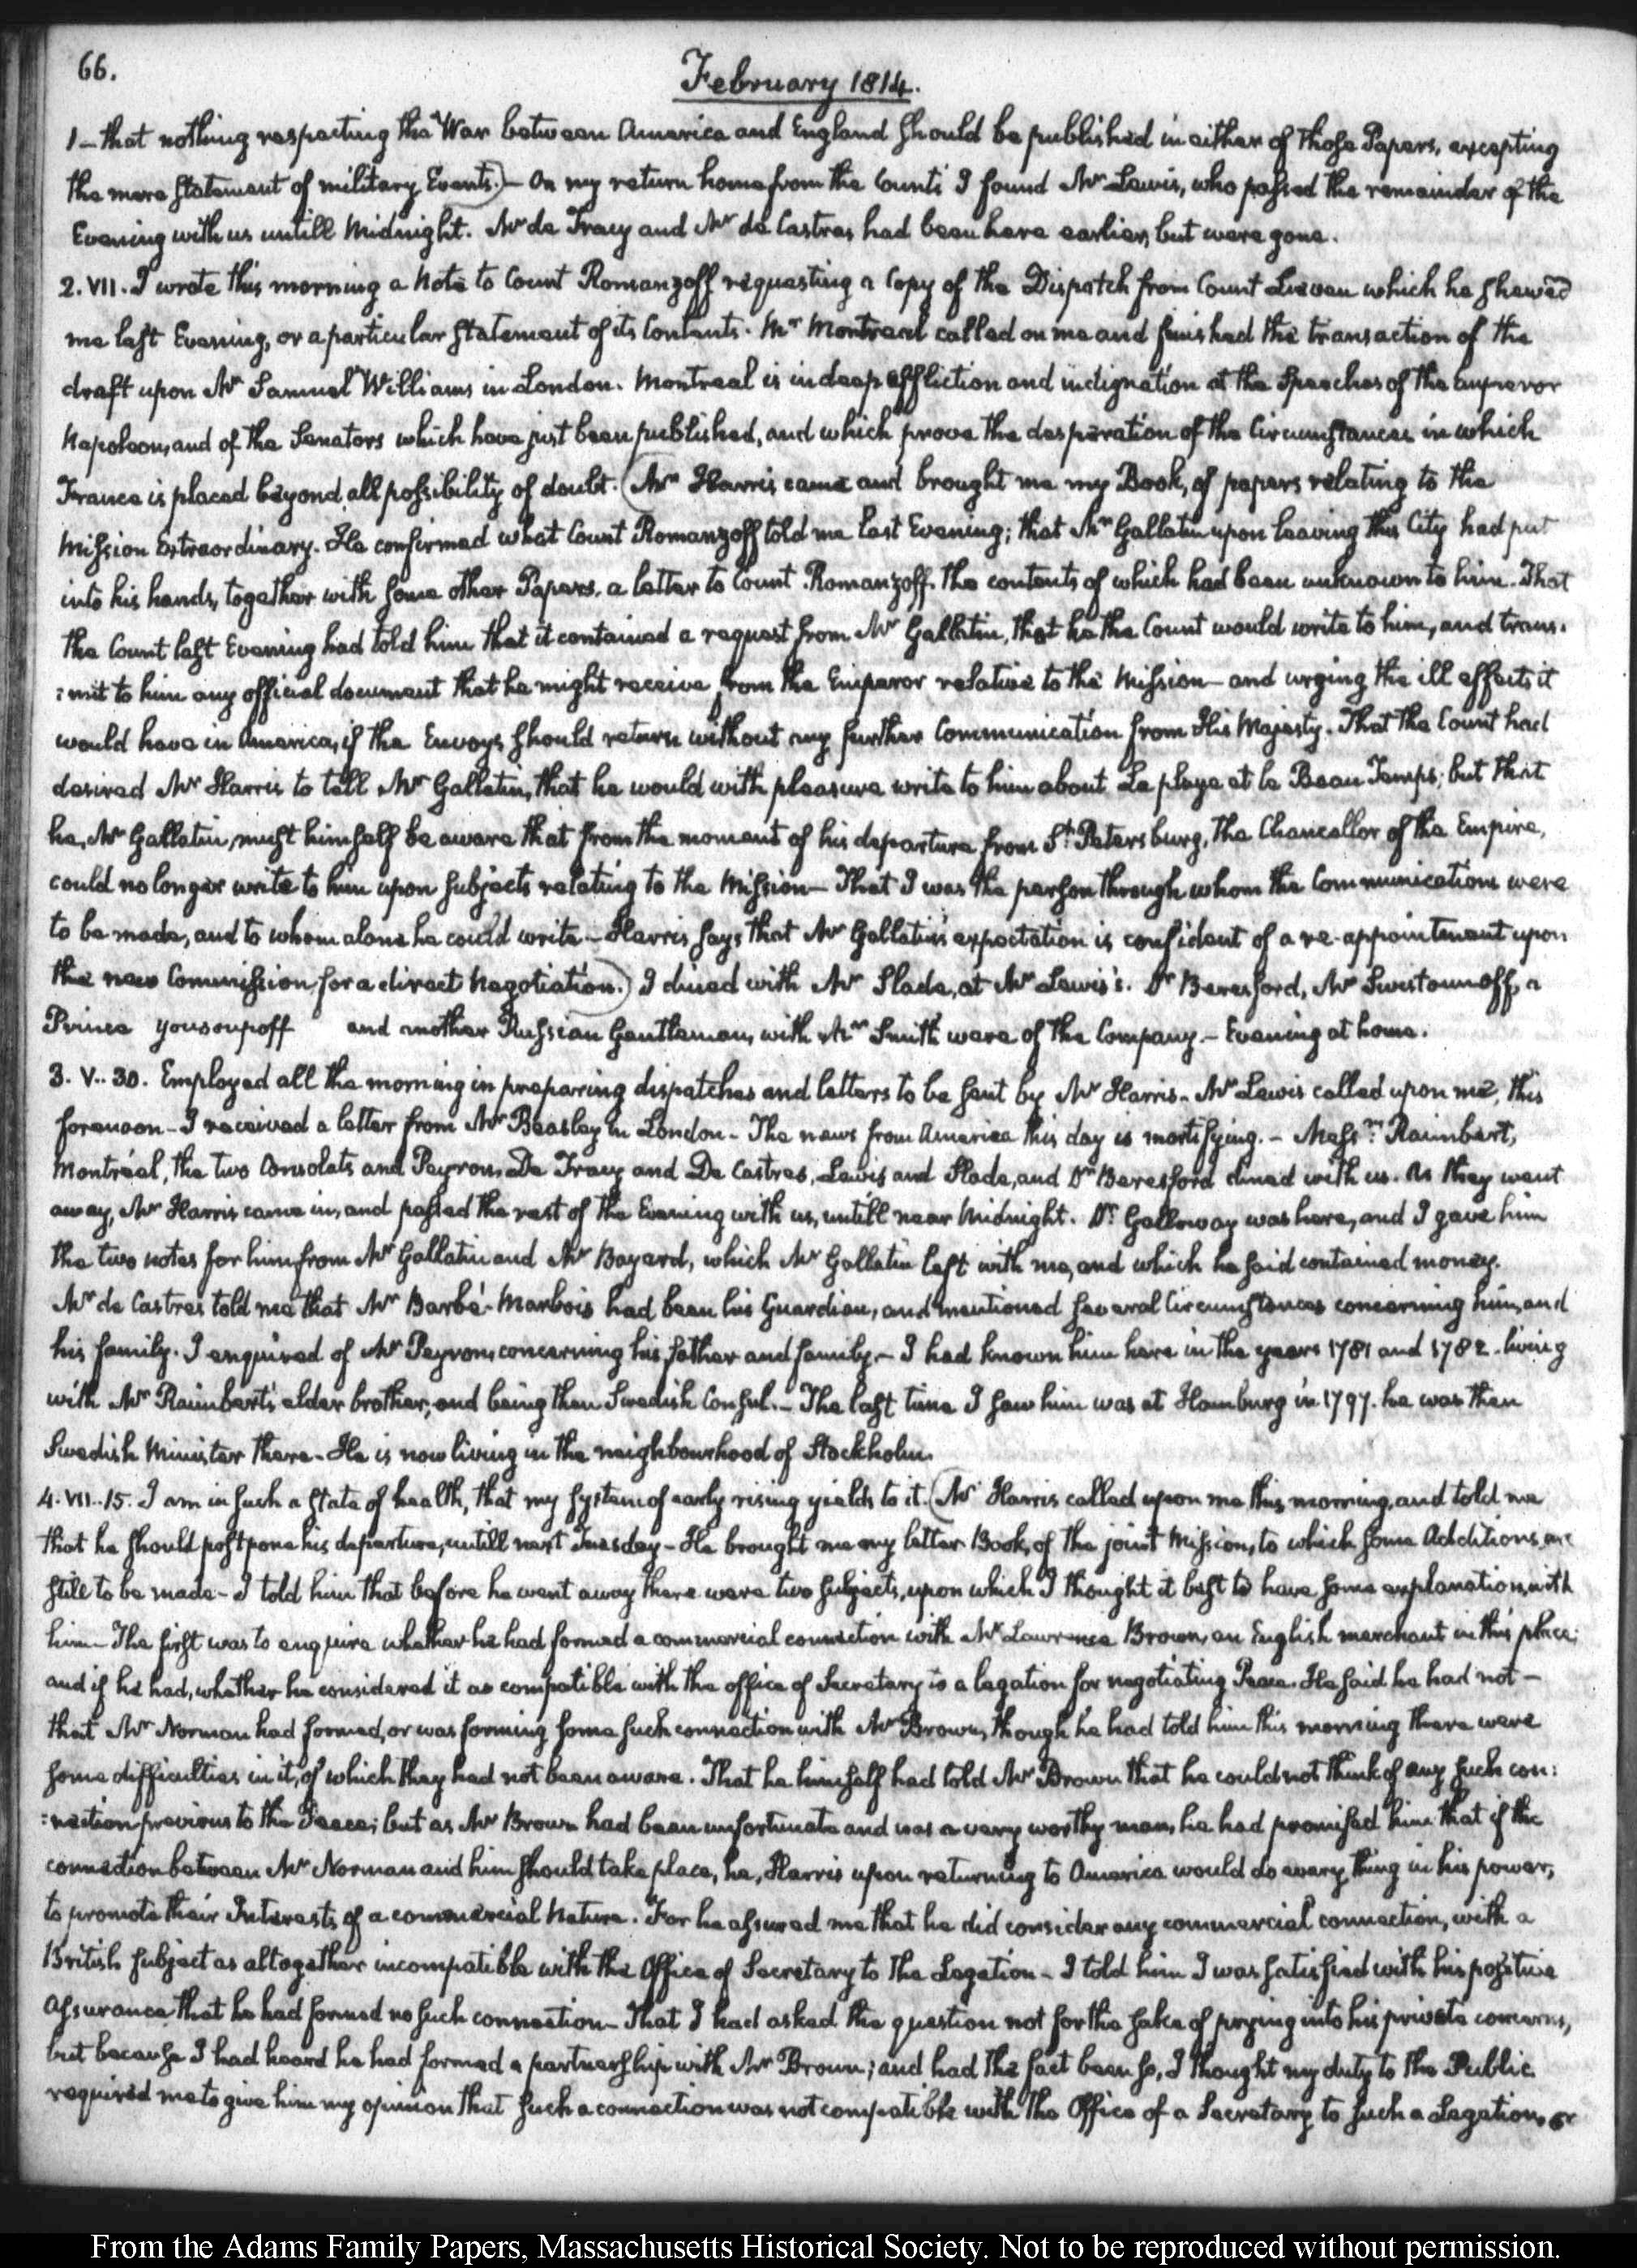 66.
February 1814.
1 – that nothing respecting the War between America and England should be published in either of those Papers, excepting
the mere statement of military Events.) – On my return home from the Count's I found Mr Lewis, who passed the remainder of the
Evening with us untill Midnight. Mr de Tracy and Mr de Castres had been here earlier, but were gone.
2. VII. I wrote this morning a Note to Count Romanzoff requesting a Copy of the Dispatch from Count Lieven which he shewed
me last Evening, or a particular statement of its Contents. Mr Montreal called on me and finished the transaction of the
draft upon Mr Samuel Williams in London. Montreal is in deep affliction and indignation at the Speeches of the Emperor
Napoleon, and of the Senators which have just been published, and which prove the desperation of the Circumstances in which
France is placed beyond all possibility of doubt. (Mr Harris came and brought me my Book, of papers relating to the
Mission Extraordinary. He confirmed what Count Romanzoff told me last Evening; that Mr Gallatin upon leaving this City had put
into his hands, together with some other Papers, a letter to Count Romanzoff, the contents of which had been unknown to him. That
the Count last Evening had told him that it contained a request from Mr Gallatin, that he the Count would write to him, and trans:
:mit to him any official document that he might receive from the Emperor relative to the Mission – and urging the ill effects it
would have in America, if the Envoys should return without any further Communication from His Majesty. That the Count had
desired Mr Harris to tell Mr Gallatin, that he would with pleasure write to him about La pluye et le Beau Temps; but that
he, Mr Gallatin, must himself be aware that from the moment of his departure from St Petersburg, The Chancellor of the Empire,
could no longer write to him upon subjects relating to the Mission – That I was the person through whom the Communications were
to be made, and to whom alone he could write – Harris says that Mr Gallatin's expectation is confident of a re-appointment upon
the new Commission, for a direct Negotiation.) I dined with Mr Slade, at Mr Lewis's. Dr Beresford, Mr Swistounoff, a
Prince Yousoupoff and another Russian Gentleman, with Mr Smith were of the Company. – Evening at home.
3. V..30. Employed all the morning in preparing dispatches and letters to be sent by Mr Harris – Mr Lewis called upon me, this
forenoon – I received a letter from Mr Beasley in London – The news from America this day is mortifying. – Messrs Raimbert,
Montréal, the two Consolats and Peyron, De Tracy and De Castres, Lewis and Slade, and Dr Beresford dined with us. As they went
away, Mr Harris came in, and passed the rest of the Evening with us, untill near Midnight. Dr Galloway was here, and I gave him
the two notes for him from Mr Gallatin and Mr Bayard, which Mr Gallatin left with me, and which he said contained money.
Mr de Castres told me that Mr Barbé-Marbois had been his Guardian, and mentioned several Circumstances concerning him, and
his family. I enquired of Mr Peyron, concerning his father and family – I had known him here in the years 1781 and 1782. living
with Mr Raimbert's elder brother, and being then Swedish Consul. – The last time I saw him was at Hamburg in 1797. he was then
Swedish Minister there – He is now living in the neighbourhood of Stockholm.
4. VII..15. I am in such a state of health, that my system of early rising yields to it. (Mr Harris called upon me this morning, and told me
that he should postpone his departure, untill next Tuesday – He brought me my letter Book, of the joint Mission, to which some Additions are
still to be made – I told him that before he went away there were two subjects, upon which I thought it best to have some explanation, with
him – The first was to enquire whether he had formed a commercial connection with Mr Lawrence Brown, an English merchant in this place;
and if he had, whether he considered it as compatible with the office of Secretary to a legation for negotiating Peace. He said he had not –
that Mr Norman had formed, or was forming some such connection with Mr Brown, though he had told him this morning there were
some difficulties in it, of which they had not been aware. That he himself had told Mr Brown that he could not think of any such con:
:nection previous to the Peace; but as Mr Brown had been unfortunate and was a very worthy man, he had promised him that if the
connection between Mr Norman and him should take place, he, Harris upon returning to America would do every thing in his power,
to promote their Interests of a commercial Nature. For he assured me that he did consider any commercial connection, with a
British subject as altogether incompatible with the Office of Secretary to the Legation – I told him I was satisfied with his positive
assurance that he had formed no such connection – That I had asked the question not for the sake of prying into his private concerns,
but because I had heard he had formed a partnership with Mr Brown; and had the fact been so, I thought my duty to the Public
required me to give him my opinion that such a connection was not compatible with the Office of a Secretary to such a Legation, or
From the Adams Family Papers, Massachusetts Historical Society. Not to be reproduced without permission.